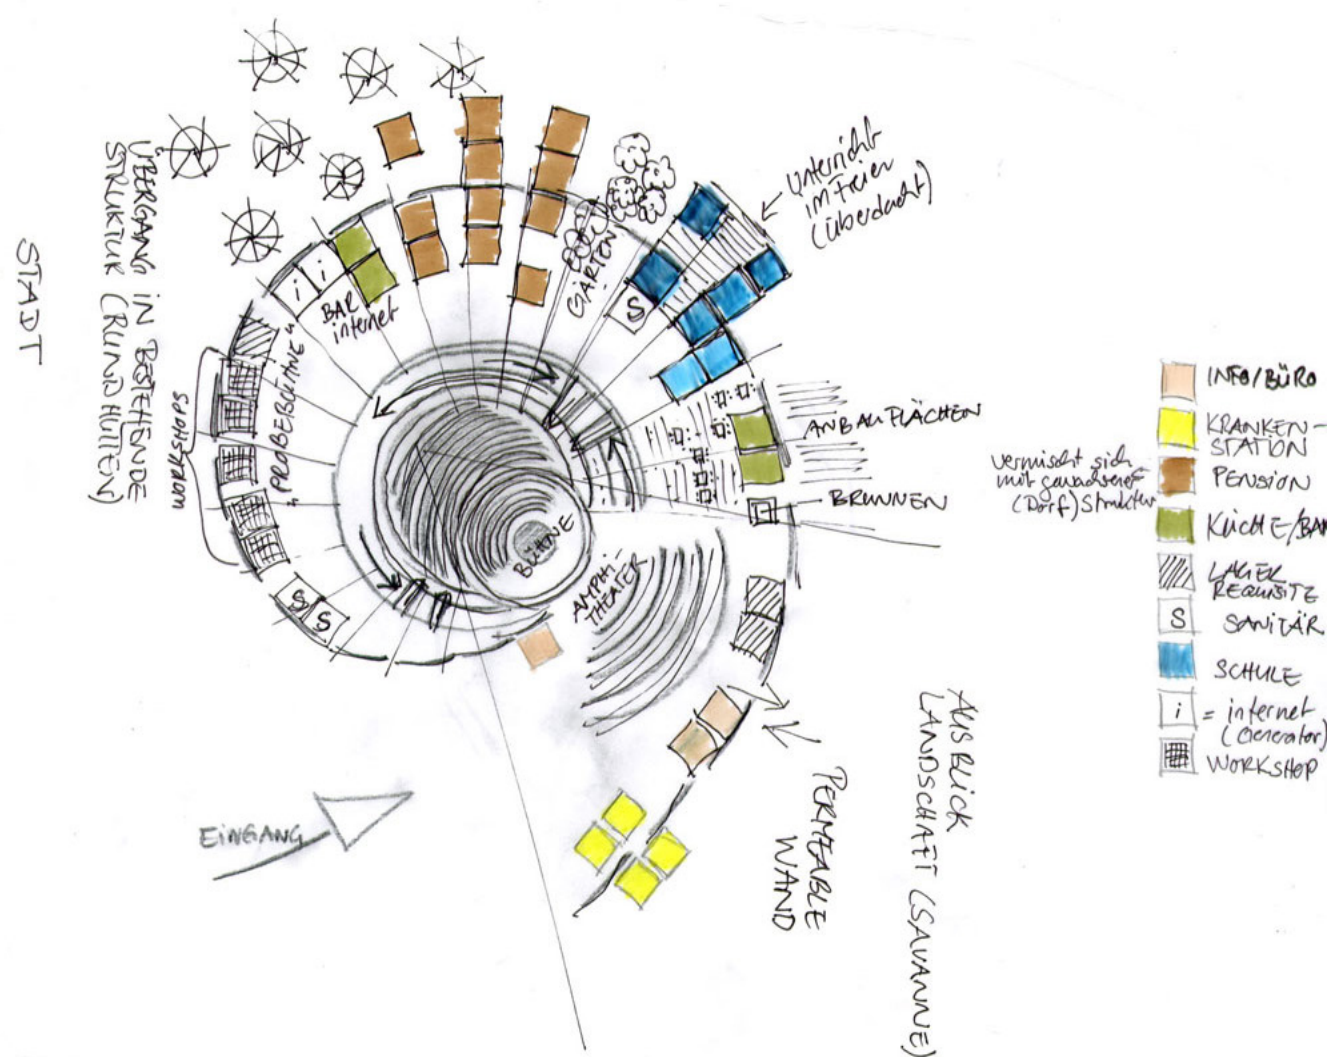 STADT
ÜBERGANG IN BESTEHENDE
STRUKTUR (RUNDHÜTTEN)
WORKSHOPS
"PROBEBÜHNE"
i
i
BAR
internet
GÄRTEN
S
Unterricht
im Freien
(überdacht)
ANBAUFLÄCHEN
BRUNNEN
vermischt sich
mit gewachsener
(Dorf) Struktur
BÜHNE
AMPHI-
THEATER
S
S
EINGANG
PERMEABLE
WAND
AUSBLICK
LANDSCHAFT (SAVANNE)
INFO/BÜRO
KRANKEN-
STATION
PENSION
KÜCHE/BAR
LAGER
REQUISITE
S SANITÄR
SCHULE
i = internet
(Generator)
WORKSHOP